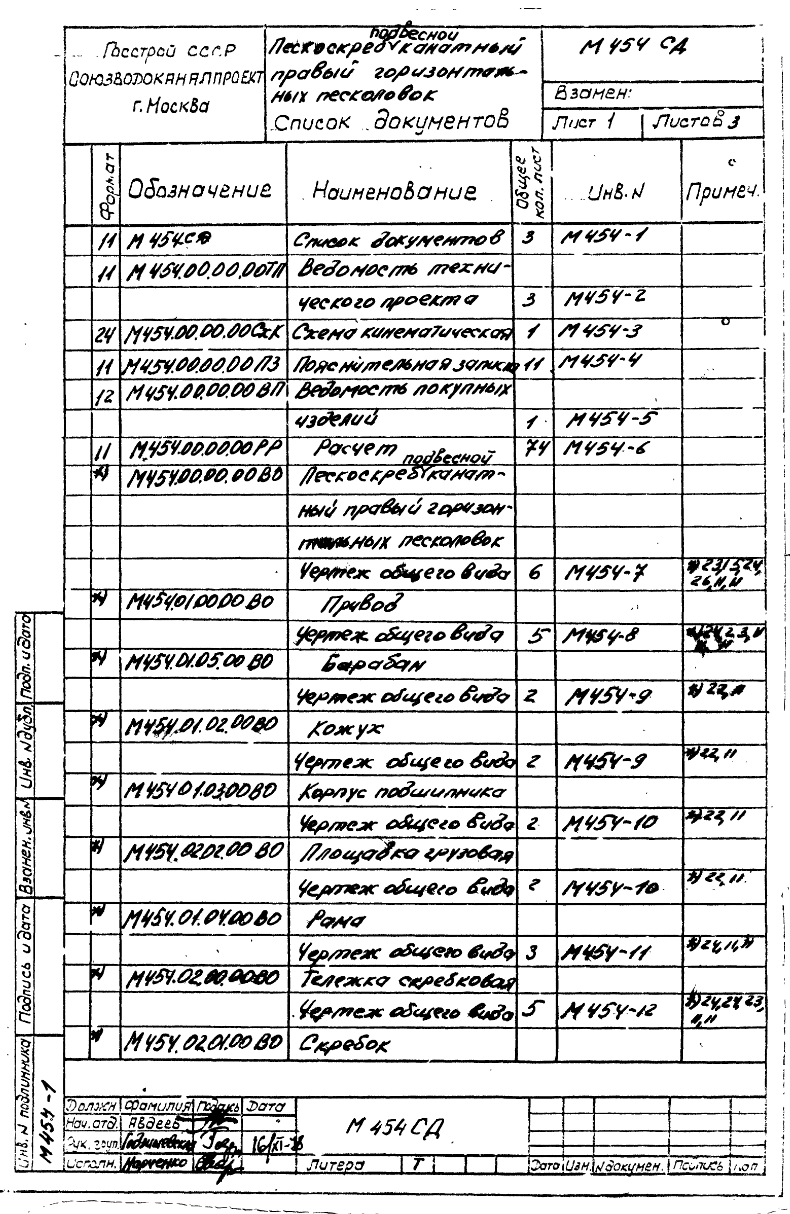 Госстрой СССР
СОЮЗВОДОКАНАЛПРОЕКТ
г. Москва
подвесной
Пескоскреб канатный
правый горизонталь-
ных песколовок
Список документов
М 454 СД
Взамен:
Лист 1 Листов 3
Формат Обозначение Наименование Общее кол. лист Инв. N Примеч.
11 М 454.СД Список документов 3 М454-1
11 М 454.00.00.00ТП Ведомость техни-
ческого проекта 3 М454-2
24 М454.00.00.00СхК Схема кинематическая 1 М454-3
11 М454.00.00.00 ПЗ Пояснительная записка 11 М454-4
12 М454.00.00.00 ВП Ведомость покупных
изделий 1 М454-5
11 М454.00.00.00 РР Расчет 74 М454-6
подвесной
*) М454.00.00.00 ВО Пескоскреб канат-
ный правый горизон-
тальных песколовок
Чертеж общего вида 6 М454-7 *)
26, 11, 11
*) М454.01.00.00 ВО Привод
Чертеж общего вида 5 М454-8
*) М454.01.05.00 ВО Барабан
Чертеж общего вида 2 М454-9 *) 22, 11
*) М454.01.02.00ВО Кожух
Чертеж общего вида 2 М454-9 *) 22, 11
*) М454.01.03.00ВО Корпус подшипника
Чертеж общего вида 2 М454-10 *) 22, 11
*) М454.02.02.00 ВО Площадка грузовая
Чертеж общего вида 2 М454-10 *) 22, 11
*) М454.01.04.00 ВО Рама
Чертеж общего вида 3 М454-11 *) 24, 11, 11
*) М454.02.00.00ВО Тележка скребковая
Чертеж общего вида 5 М454-12 *) 24, 24, 23,
11, 11
*) М454.02.01.00 ВО Скребок
Инв. N подлинника Подпись и дата Взамен. инв. N Инв. N дубл. Подп. и дата
М454-1
Должн Фамилия Подпись Дата
Нач. отд. Авдеев
Рук. груп.
Исполн. Марченко
М 454 СД
Литера Т
Дата Изм. N докумен. Подпись